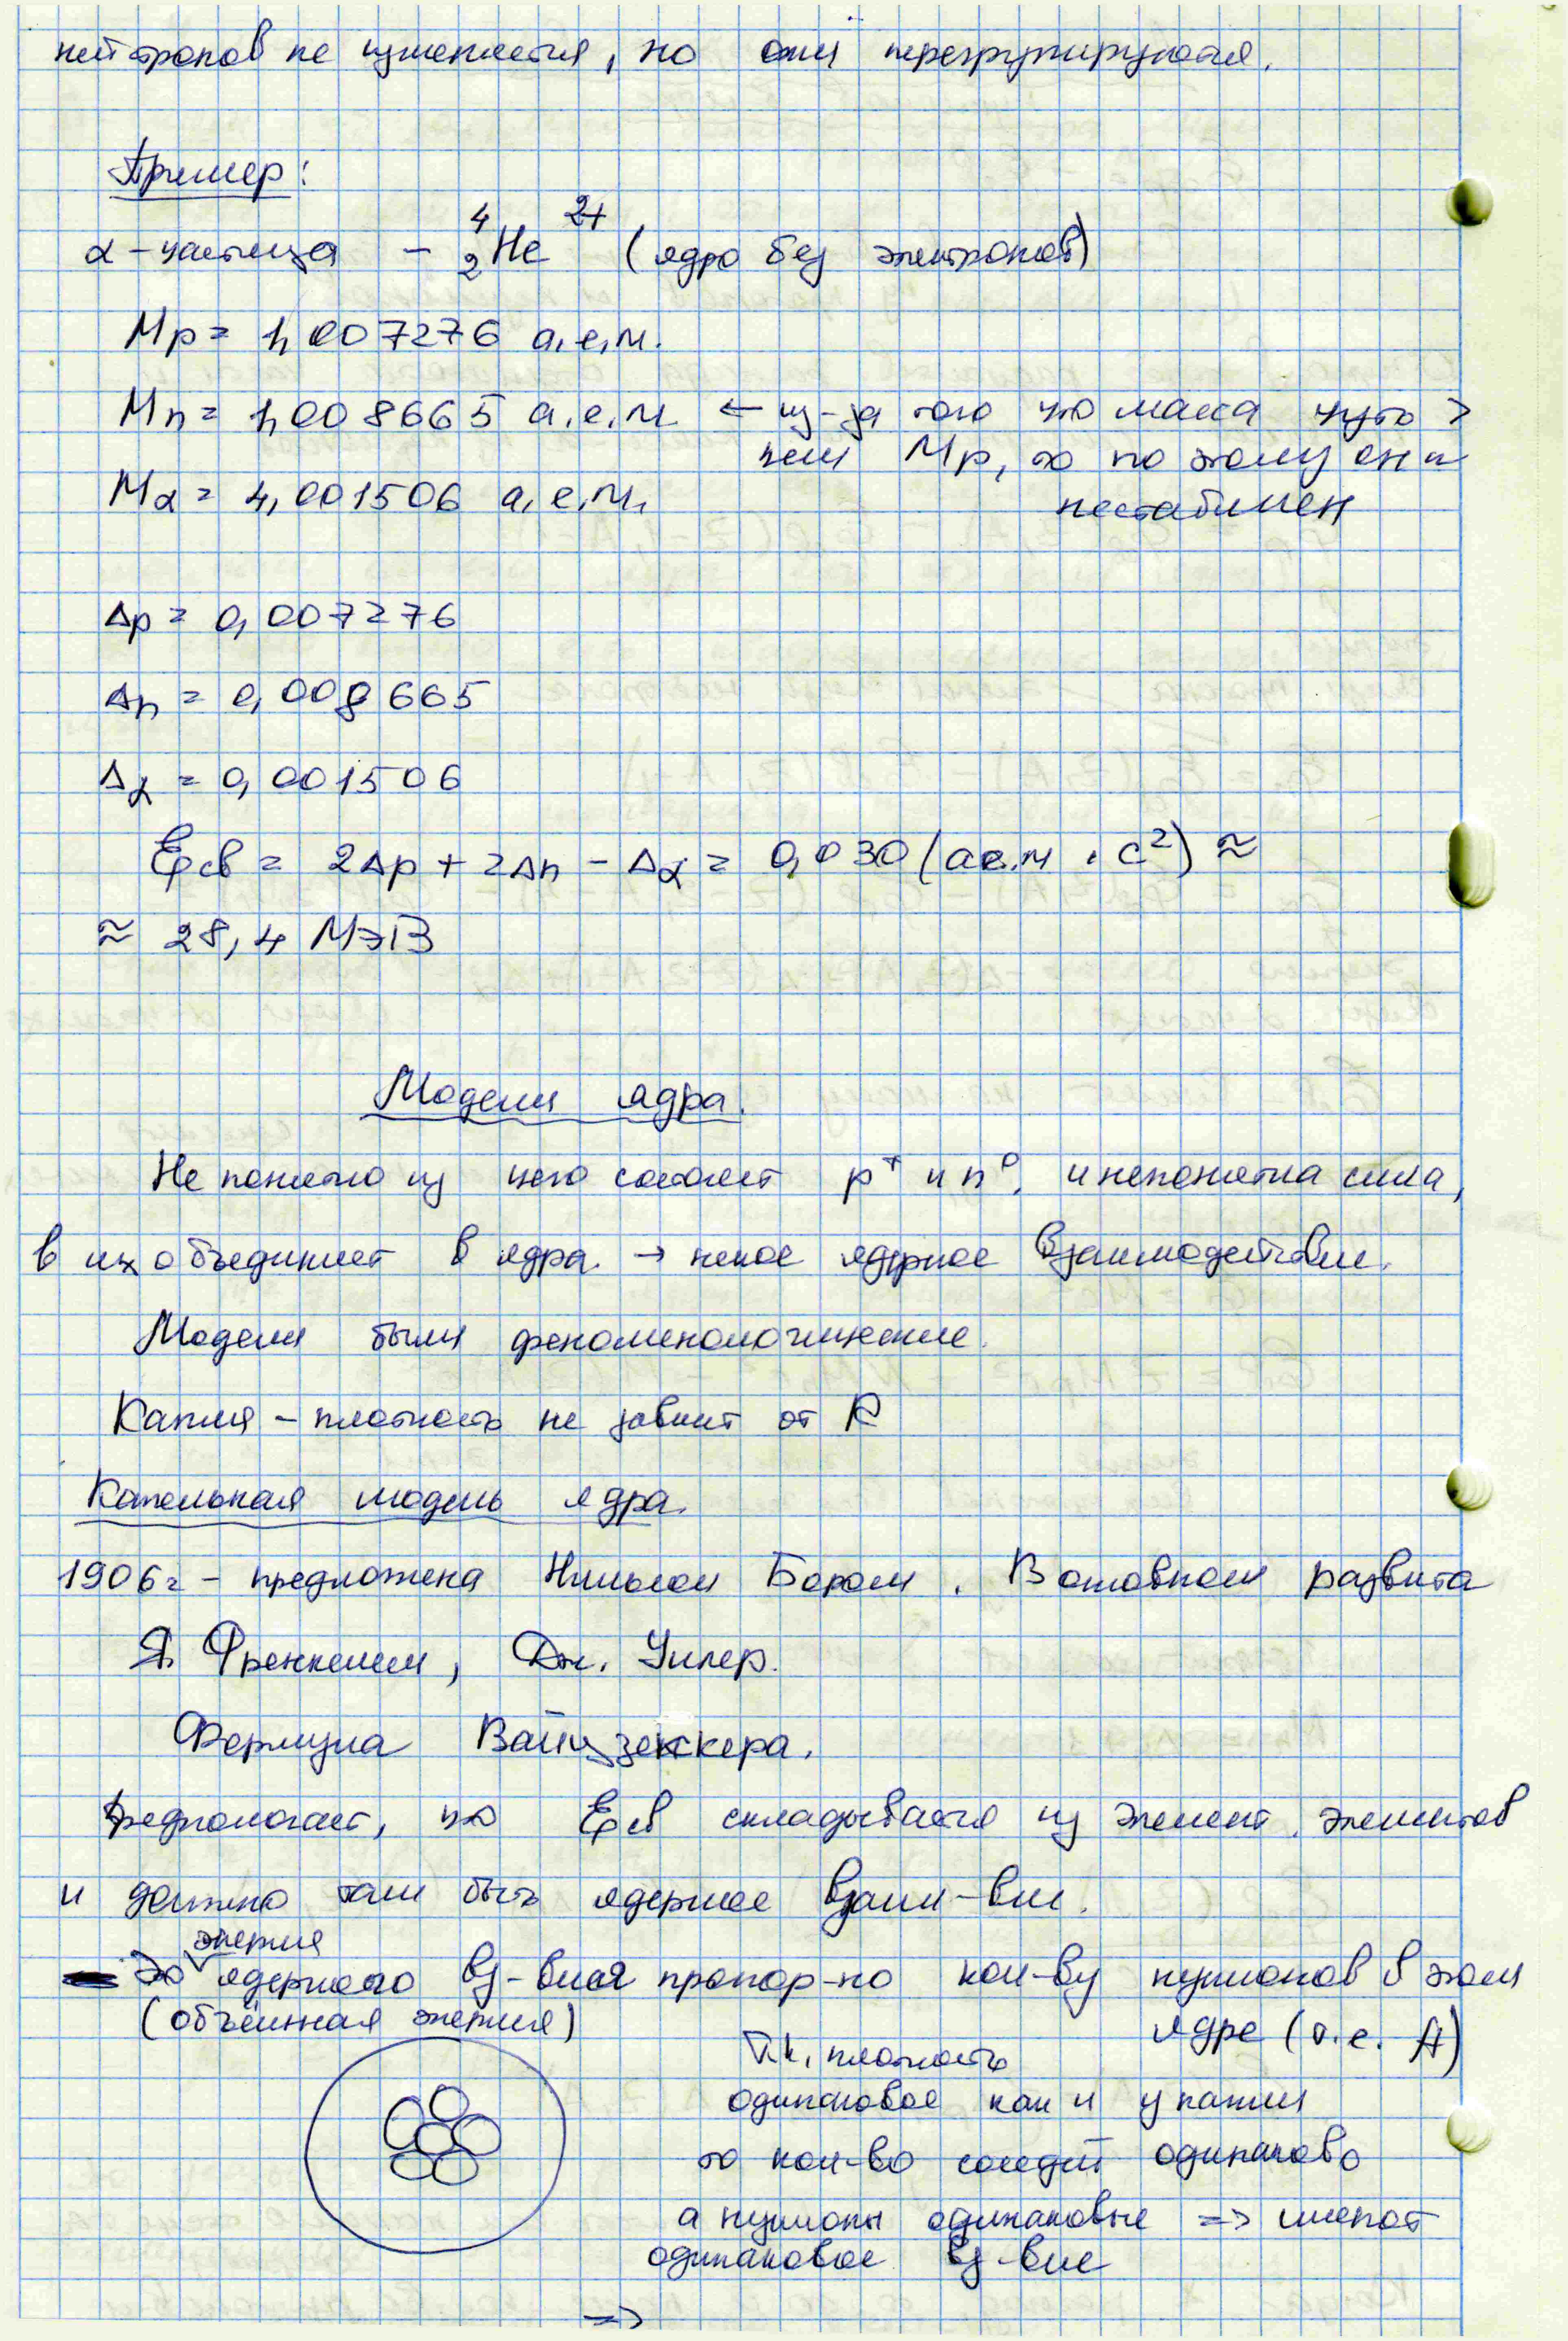 нейтронов не изменяется, но они перегруппируются.
Пример:
α-частица – ⁴₂He²⁺ (ядро без электронов)
Mp = 1,007276 а.е.м.
Mn = 1,008665 а.е.м. ← из-за того что масса чуть >
чем Mp, то по этому он и
нестабилен
Mα = 4,001506 а.е.м.
Δp = 0,007276
Δn = 0,008665
Δα = 0,001506
Eсв = 2Δp + 2Δn – Δα = 0,030 (а.е.м · c²) ≈
≈ 28,4 МэВ
Модели ядра.
Не понятно из чего состоят p⁺ и n⁰, и непонятна сила,
в их объединяет в ядра. → некое ядерное взаимодействие.
Модели были феноменологические.
Капля – плотность не зависит от R
Капельная модель ядра.
1906г – предложена Нильсом Бором. В основном развита
Я. Френкелем, Дж. Уилер.
Формула Вайцзеккера.
Предпологает, что Eсв складывается из элемент. элементов
и должно там быть ядерное взаим-вие.
энергия
Это ядерного вз-вия пропор-но кол-ву нуклонов в этом
(объёмная энергия)
ядре (т.е. A)
Т.к. плотность
одинаковое как и у капли
то кол-во соседей одинаково
а нуклоны одинаковые => имеют
одинаковое вз-вие
=>